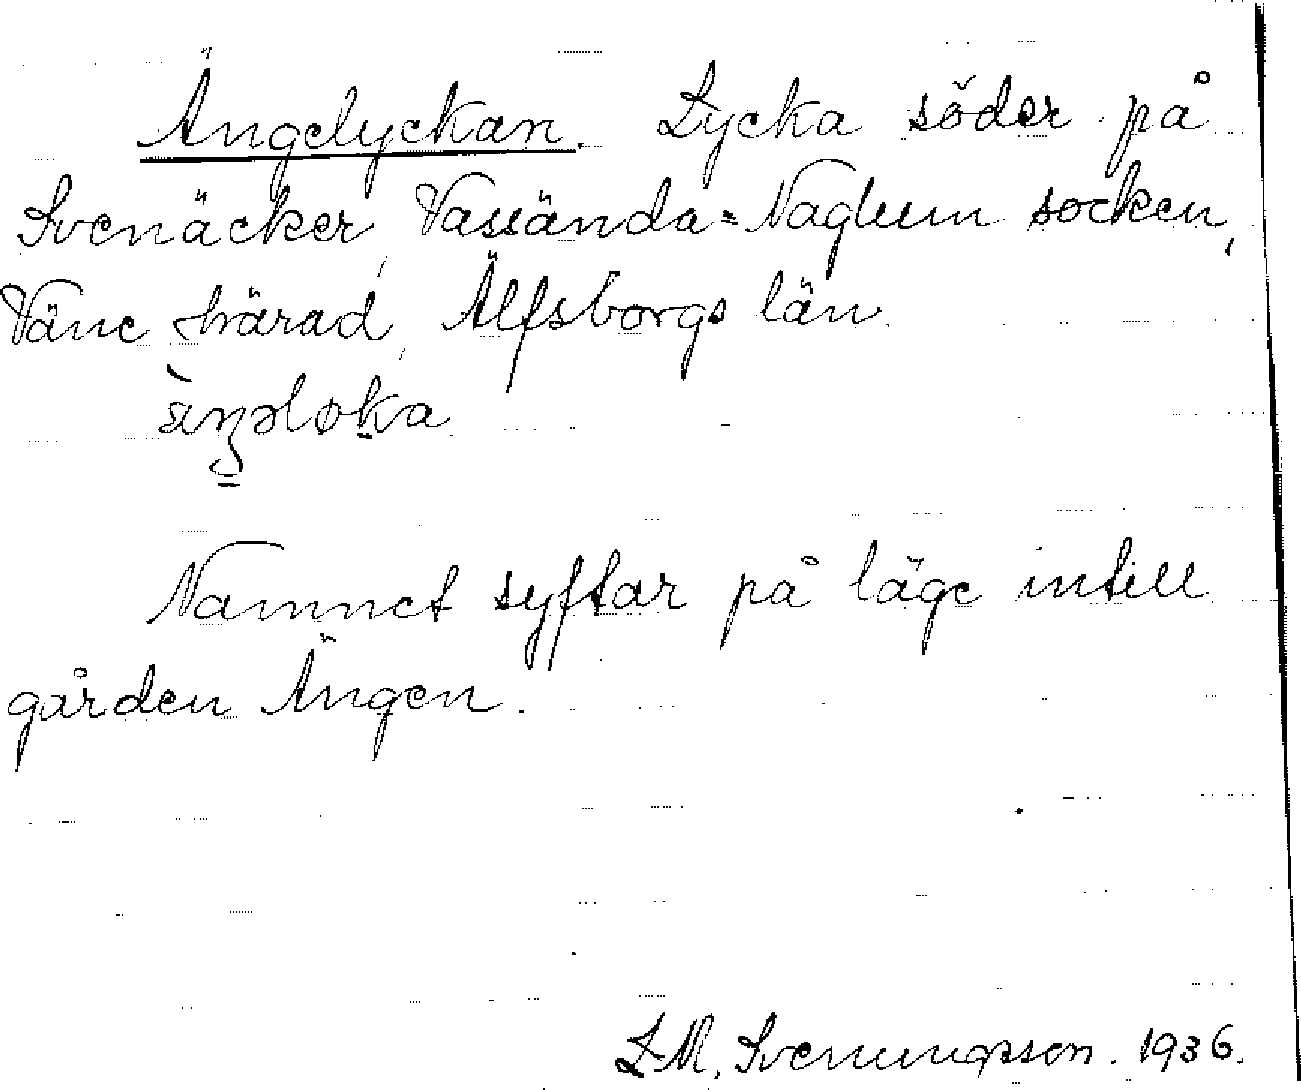 Ängelyckan. Lycka söder på
Svenäcker, Vassända-Naglum socken,
Väne härad, Älfsborgs län.
Namnet syftar på läge intill
gården Ängen.
L.M. Svenungsson. 1936.